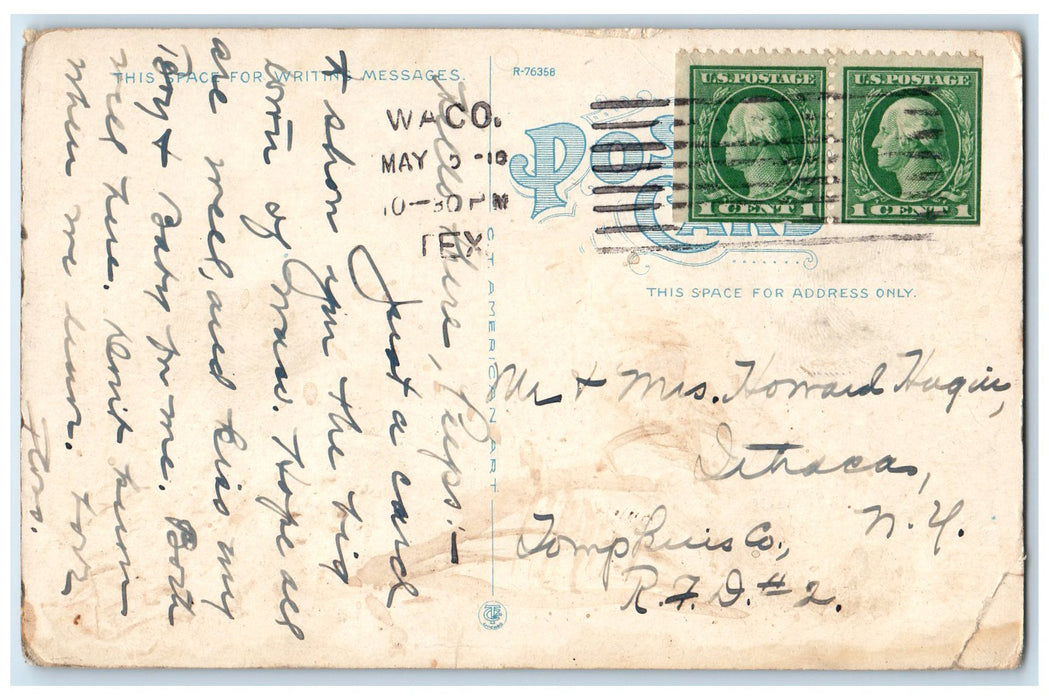 THIS SPACE FOR WRITING MESSAGES.
R-76358
WACO.
MAY 5 -18
10-30 PM
TEX.
POST CARD
U.S. POSTAGE
1 CENT 1
U.S. POSTAGE
1 CENT 1
THIS SPACE FOR ADDRESS ONLY.
C. T. AMERICAN ART
Hello there, Peeps:—
Just a card
to show you the big
town of Waco. Hope all
are well, and kiss my
Terry & Baby for me. Both
well here. Don't know
when we leave. Love
Floss.
Mr & Mrs. Howard Hagin,
Ithaca,
N.Y.
Tompkins Co.,
R.F.D. # 2.